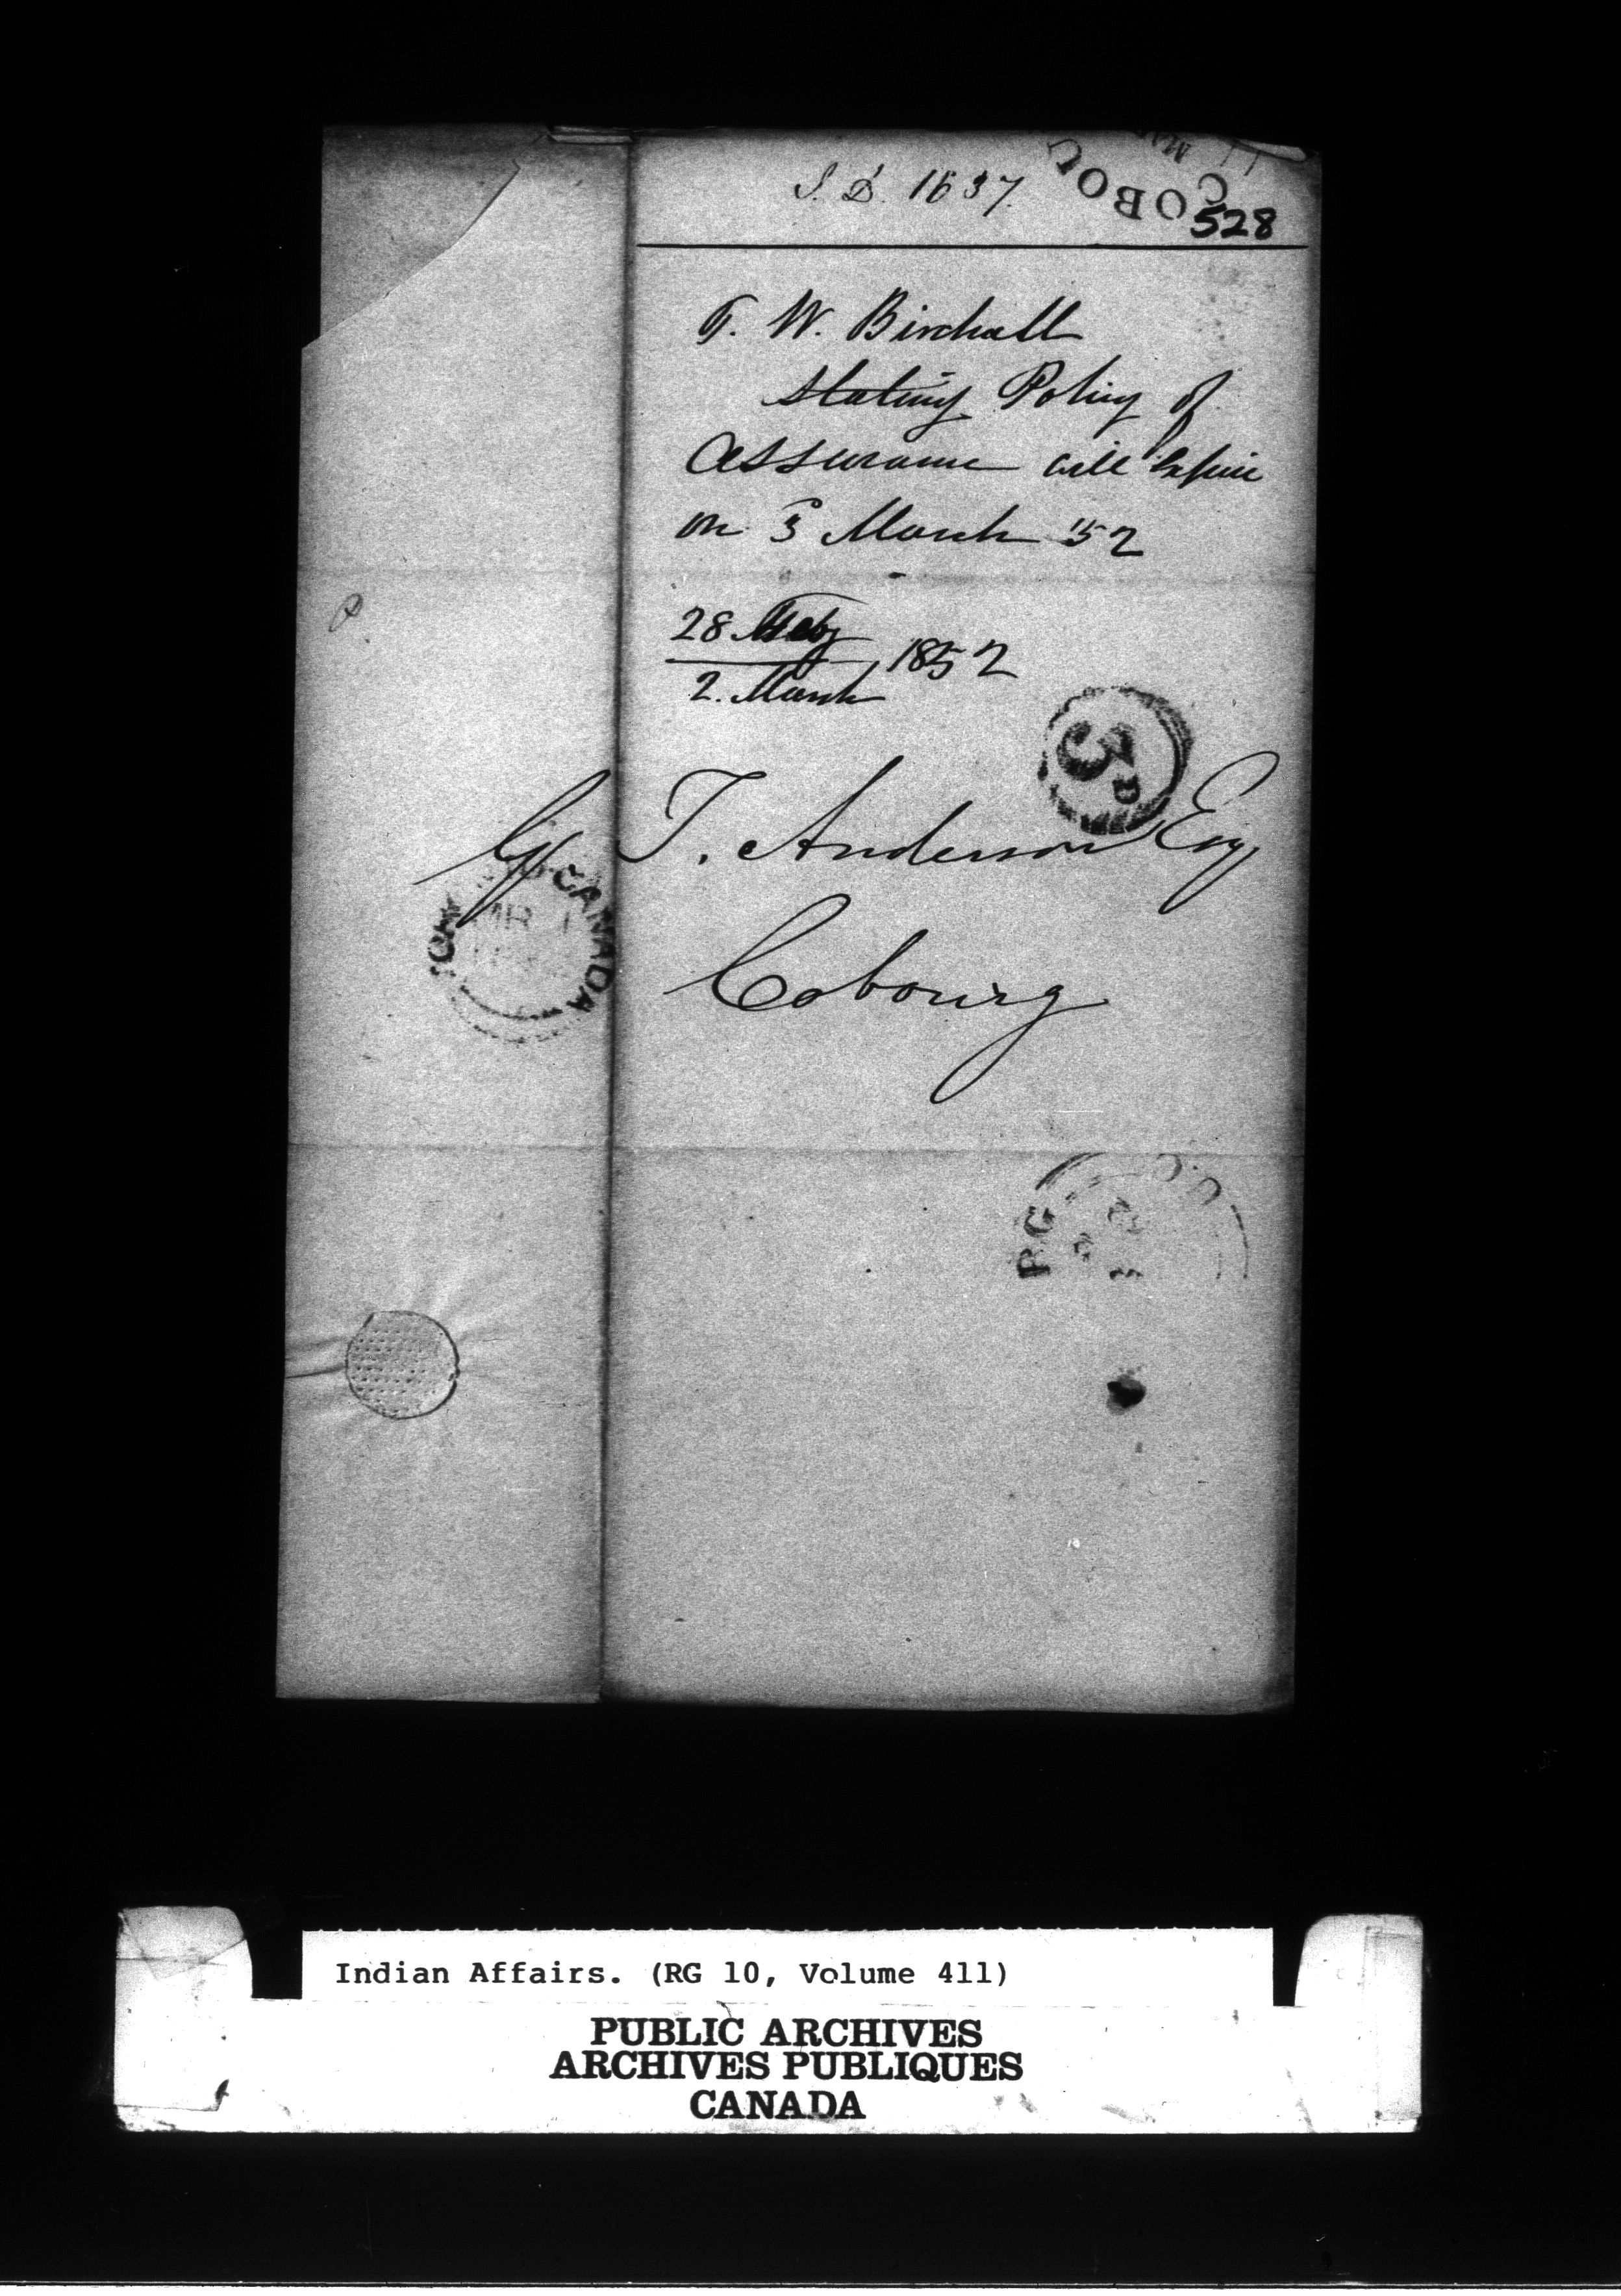 S. D. 1637.
COBOU
528
T. W. Birchall
stating Policy of
Assurance will Expire
on 3 March '52
28 Feby
2. March
1852
3D
T. Anderson Esq
CANADA
MR 1
Cobourg
RG
Indian Affairs. (RG 10, Volume 411)
PUBLIC ARCHIVES
ARCHIVES PUBLIQUES
CANADA